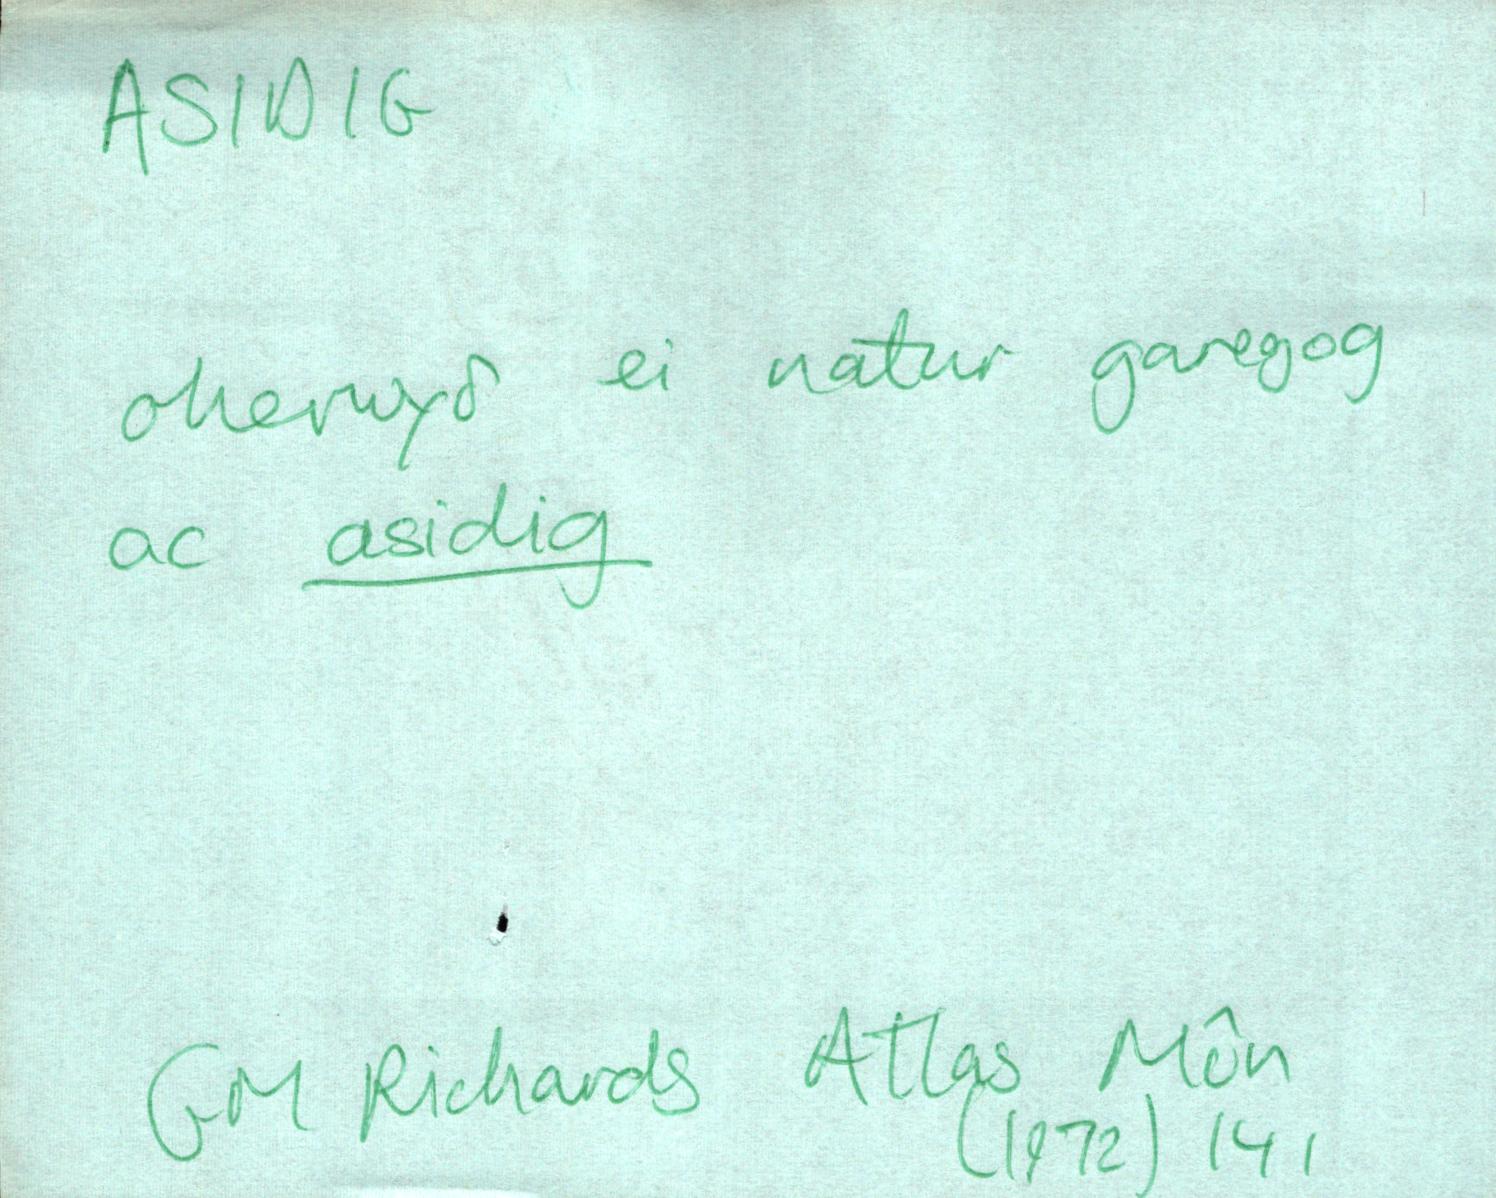 ASIDIG
oherwyδ ei natur garegog
ac asidig
GM Richards Atlas Môn
(1972) 141